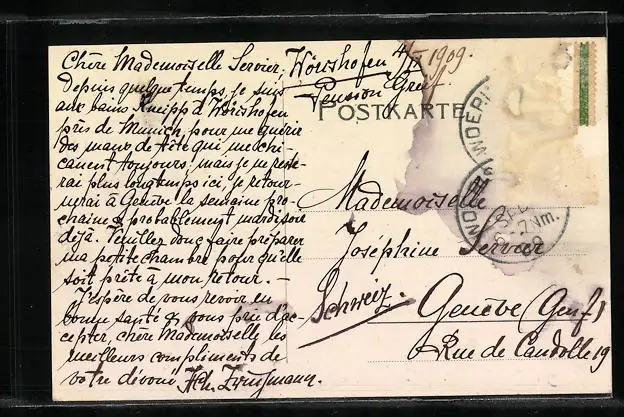 Chère Mademoiselle Servier, Wörishofen 4/II 1909.
Pension Greif.
depuis quelque temps, je suis
aux bains Kneipp à Wörishofen
près de Munich, pour me guérir
des maux de tête qui me chi-
canent toujours; mais je ne reste-
rai plus longtemps ici, je retour-
nerai à Genève la semaine pro-
chaine & probablement mardi soir
déjà. Veuillez donc faire préparer
ma petite chambre pour qu'elle
soit prête à mon retour. —
J'espère de vous revoir en
bonne santé & vous prie d'ac-
cepter, chère Mademoiselle, les
meilleurs compliments de
votre dévoué
POSTKARTE
Mademoiselle
Joséphine Servier
Genève (Genf)
Schweiz.
Rue de Candolle 19